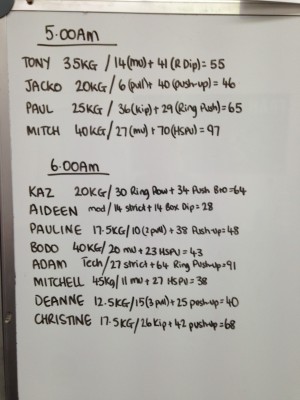 5.00Am
TONY 35KG/14(mu)+ 41 (R Dip)= 55
JACKO 20KG/6(pull)+ 40(push-up)= 46
PAUL 25KG/36(kip)+29(Ring Push)=65
MITCH 40KG/27(mu)+70(HSPU)= 97
6.00Am
KAZ 20KG/30 Ring Row+34 Push Bro=64
AIDEEN mod/14 strict+14 Box Dip=28
PAULINE 17.5KG/10(2pull)+38 Push-up=48
BODO 40KG/20 mu+23 HSPU=43
ADAM Tech/27 strict+64 Ring Push-up=91
MITCHELL 45Kg/11 mu+27 HSPU=38
DEANNE 12.5KG/15(3pull)+25 push-up=40
CHRISTINE 17.5KG/26 Kip+42 push-up=68